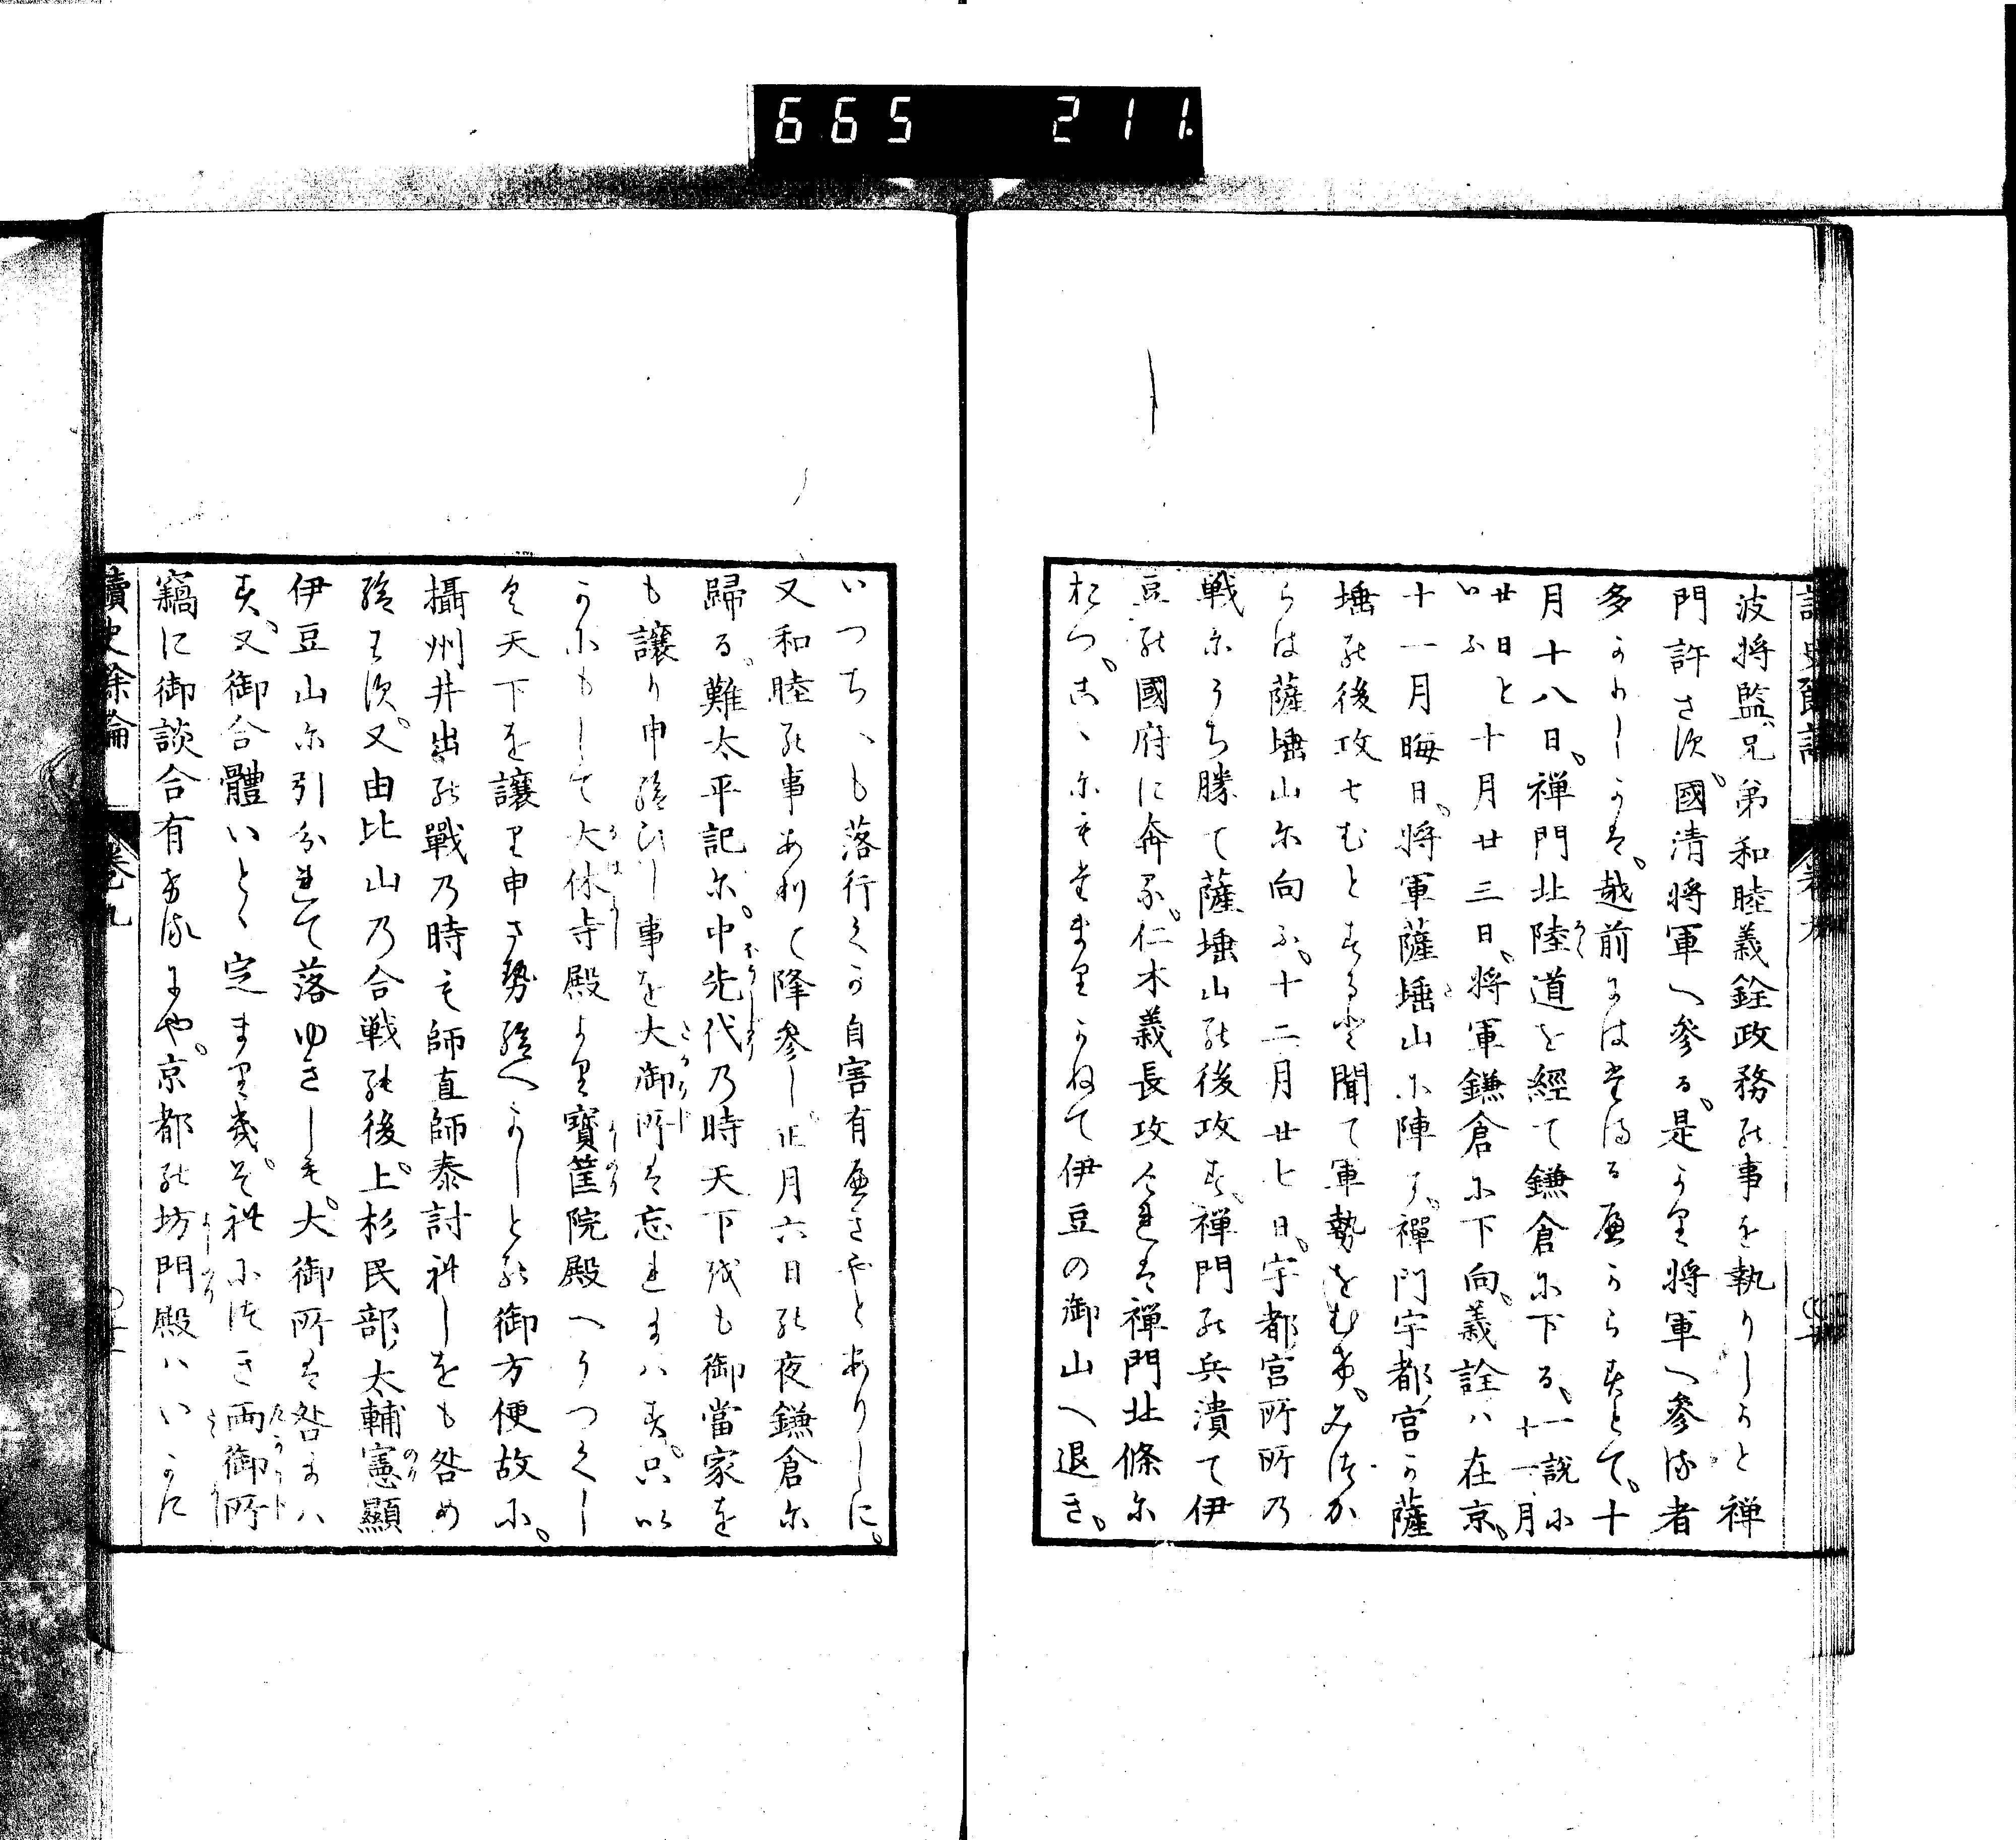 665 211
讀史餘論 卷九
波将監、兄弟和睦義銓政務の事を執りしかと禅
門許さす。國清将軍へ参る。是より将軍へ参る者
多かりしかは、越前にはたまるへからすとて、十
月十八日、禅門北陸道を經て鎌倉に下る、一説に十一月
廿日といふ 十月廿三日、将軍鎌倉に下向、義詮ハ在京、
十一月晦日、将軍薩埵山に陣す。禪門宇都宮か薩
埵の後攻せむとするを聞て軍勢をむけ、みつか
らは薩埵山に向ふ、十二月廿七日、宇都宮所所の
戦にうち勝て薩埵山の後攻す、禅門の兵潰て伊
豆の國府に奔る、仁木義長攻くれは禅門北條に
おつ、こゝにもたまりかねて伊豆の御山へ退き、
いつちゝも落行くか自害有へきやとありしに、
又和睦の事ありて降参し、正月六日の夜鎌倉に
歸る。難太平記に、中先代の時天下をも御當家を
も譲り申給ひし事を大御所は忘れまハす、只い
かにもして大休寺殿より寶筐院殿へうつくし
く天下を譲り申させ給へかしとの御方便故に、
攝州井出の戰の時も師直師泰討れしをも咎め
給はす、又由比山の合戦の後、上杉民部太輔憲顯
伊豆山に引分れて落ゆきしも、大御所は咎まハ
す、又御合體いとゝ定まりき、それにつき両御所
竊に御談合有けるにや、京都の坊門殿ハいかに
讀史餘論 卷九